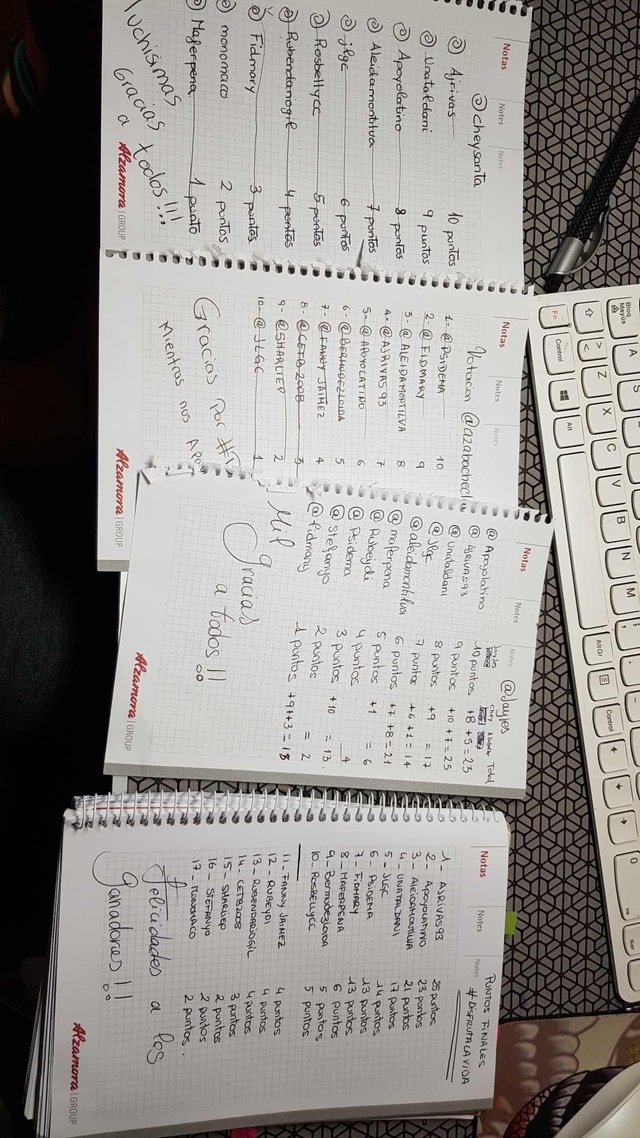 Notas Notes Notes
@cheysanta
@ Ajrivas 10 puntos
@ Unataldani 9 puntos
@ Apoyolatino 8 puntos
@ Aleidamontilva 7 puntos
@ jlgc 6 puntos
@ Rosbellycc 5 puntos
@ Rubendariogil 4 puntos
@ Fidmary 3 puntos
@ monomaco 2 puntos
@ Maferpena 1 punto
Muchisimas
Gracias a
todos!!!
Alzamora | GROUP
Notas Notes Notes
Votacion @azabache
1- @PSIDENA 10
2- @FIDMARY 9
3- @ALEIDAMONTILVA 8
4- @AJRIVAS93 7
5- @APOYOLATINO 6
6- @BERMUDEZLOIDA 5
7- @FANNY JAIMEZ 4
8- @CETB2008 3
9- @SHARLIEP 2
10- @JLGC 1
Gracias por
Mientras nos
Alzamora | GROUP
Notas Notes Notes
@Jayjos
Jayjos Chey Total
@ Apoyolatino 10 puntos +8 +5 = 23
@ AJRIVAS93 9 puntos +10 +7 = 25
@ Unataldani 8 puntos +9 = 17
@ Jlgc 7 puntos +6 +1 = 14
@aleidamontilva 6 puntos +7 +8 = 21
@maferpena 5 puntos +1 = 6
@ Rubeydi 4 puntos 4
@ Psidena 3 puntos +10 = 13
@ Stefanyo 2 puntos = 2
@ fidmary 1 puntos +9 +3 = 13
Mil
Gracias
a todos!!
Alzamora | GROUP
Notas Notes Notes
PUNTOS FINALES
#DISFRUTALAVIDA
1- AJRIVAS93 25 puntos
2- APOYOLATINO 23 puntos
3- ALEIDAMONTILVA 21 puntos
4- UNATALDANI 17 puntos
5- JLGC 14 puntos
6- PSIDENA 13 puntos
7- FIDMARY 13 puntos
8- MAFERPENA 6 puntos
9- Bermudezloida 5 puntos
10- ROSBELLYCC 5 puntos
11- FANNY JAIMEZ 4 puntos
12- RUBEYDI 4 puntos
13- RUBENDARIOGIL 4 puntos
14- CETB2008 3 puntos
15- SHARLIEP 2 puntos
16- STEFANYO 2 puntos
17- MONOMACO 2 puntos.
Felicidades a los
Ganadores!!
Alzamora | GROUP
Bloq Mayús
A
Z
X
C
V
B
N
M
Fn
Control
Alt
Alt Gr
Control